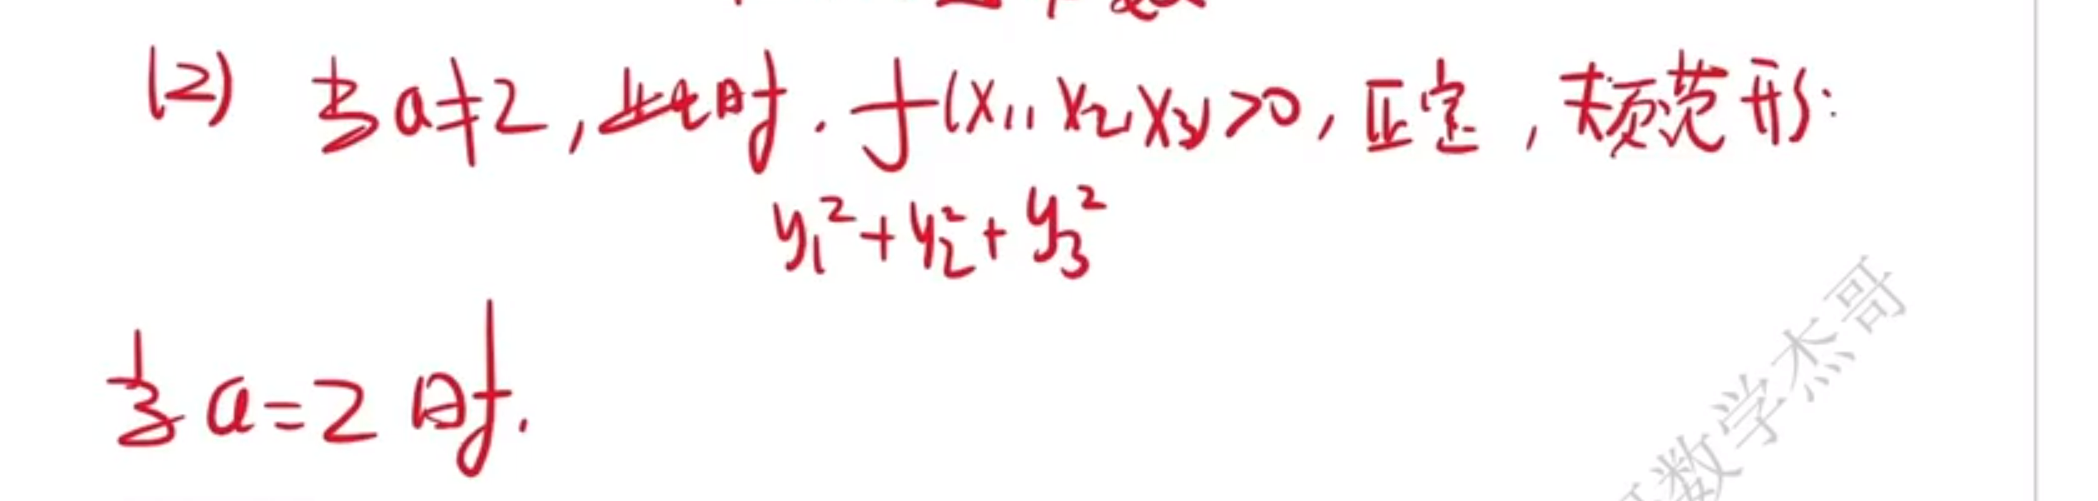 (2) 当a≠2,此时.f(x₁,x₂,x₃)>0,正定,规范形:
y₁²+y₂²+y₃²
当a=2时.
数学杰哥